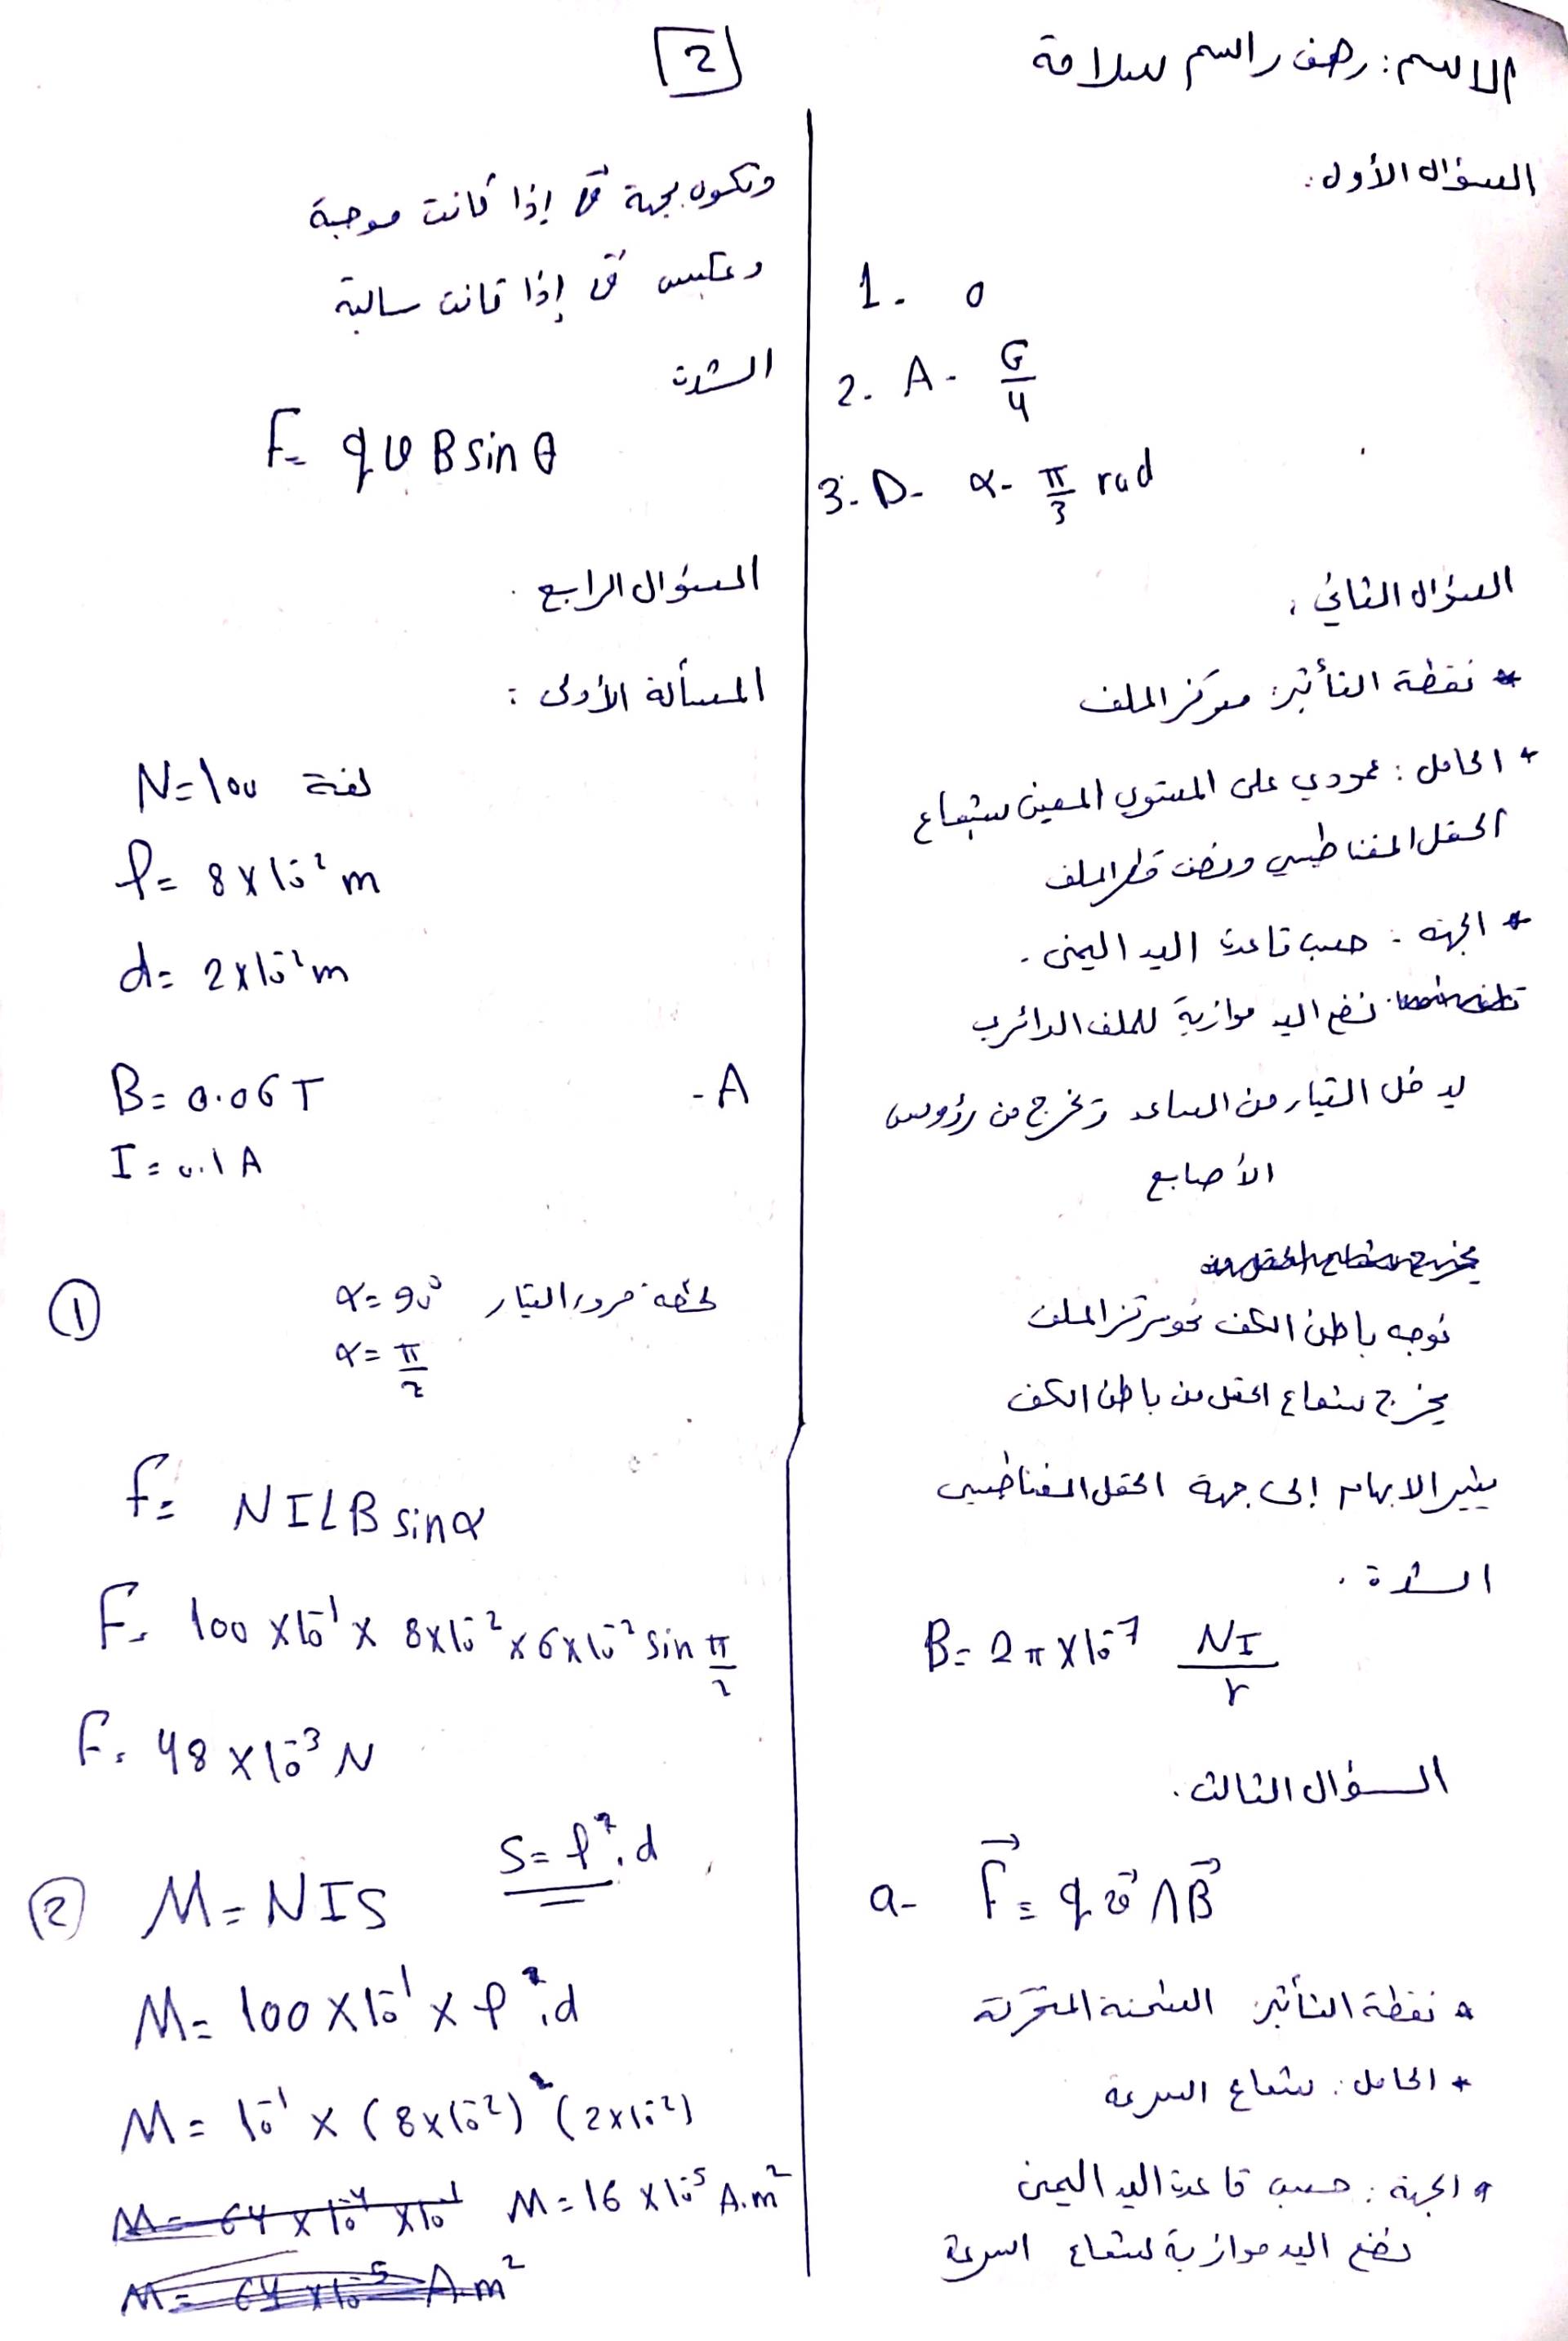 2
الاسم: رهف راسم سلامة
السؤال الأول:
1. 0
2. A - G/4
3. D - α - π/3 rad
السؤال الثاني:
* نقطة التأثير: مركز الملف
* الحامل: عمودي على المستوي المعين بشعاع
الحقل المغناطيسي ونصف قطر الملف
* الجهة: حسب قاعدة اليد اليمنى.
نضع اليد موازية للملف الدائري
يدخل التيار من الساعد وتخرج من رؤوس
الأصابع
نوجه باطن الكف نحو مركز الملف
يخرج شعاع الحقل من باطن الكف
يشير الابهام إلى جهة الحقل المغناطيسي
الشدة.
B = 2π×10⁻⁷ NI/r
السؤال الثالث.
a- F⃗ = q v⃗ ∧ B⃗
* نقطة التأثير: الشحنة المتحركة
* الحامل: شعاع السرعة
* الجهة: حسب قاعدة اليد اليمنى
نضع اليد موازية لشعاع السرعة
وتكون بجهة v⃗ إذا كانت موجبة
وعكس v⃗ إذا كانت سالبة
الشدة
F = q v B sin θ
السؤال الرابع.
المسألة الأولى:
N = 100 لفة
ℓ = 8×10⁻² m
d = 2×10⁻² m
B = 0.06 T -A
I = 0.1 A
① لحظة مرور التيار α = 90°
α = π/2
F = NILB sin α
F = 100 × 10⁻¹ × 8×10⁻² × 6×10⁻² sin π/2
F = 48 × 10⁻³ N
S = ℓ².d
② M = NIS
M = 100 × 10⁻¹ × ℓ².d
M = 10⁻¹ × (8×10⁻²)² (2×10⁻²)
M = 64 × 10⁻⁴ × 10⁻¹ M = 16 × 10⁻⁵ A.m²
M = 64 × 10⁻⁵ A.m²